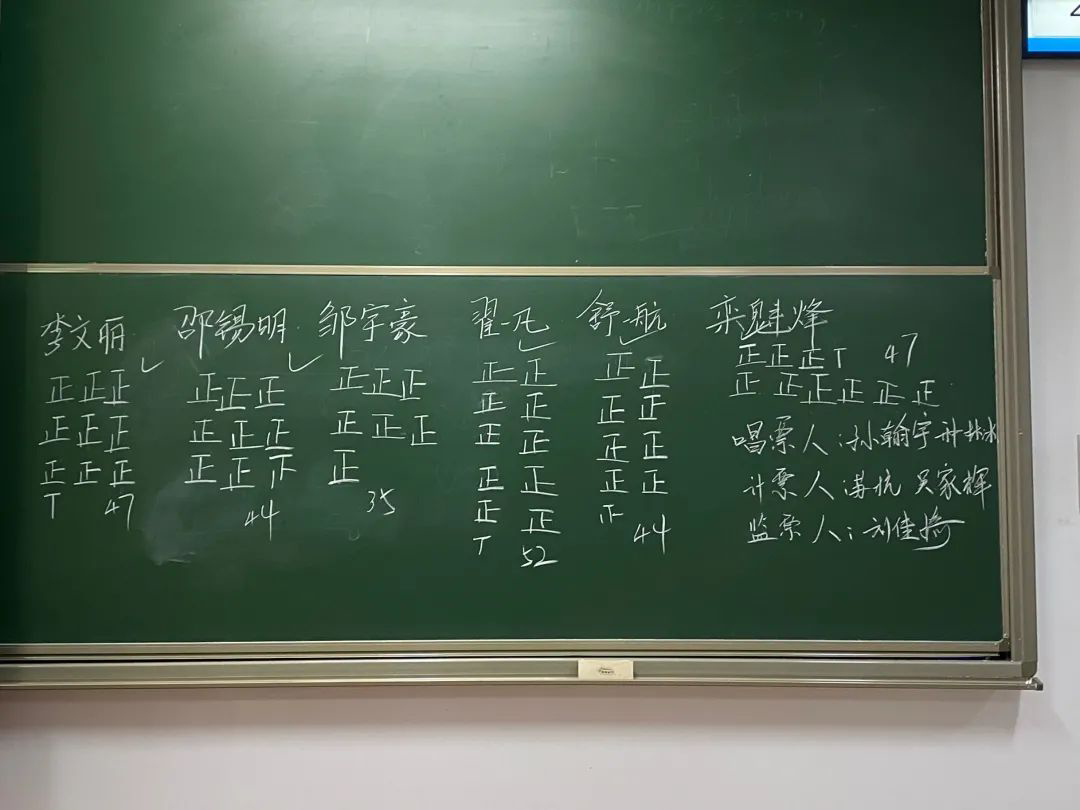 李文丽 邵锡明 邹宇豪 翟一凡 舒航 栾魁烽
正正正 正正正 正正正 正正 正正 正正正T 47
正正正 正正正 正正正 正正 正正 正正正正正正
正正正 正正正 正 正正 正正
T 47 44 35 正正 正正
正正 44
T 52
唱票人:孙翰宇
计票人:苏杭 吴家辉
监票人:刘佳